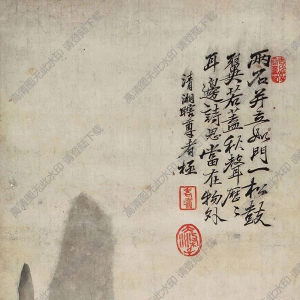 兩石并立如門一松鼓
翼若蓋秋聲歷〻
耳邊詩思當在物外
清湘瞎尊者極